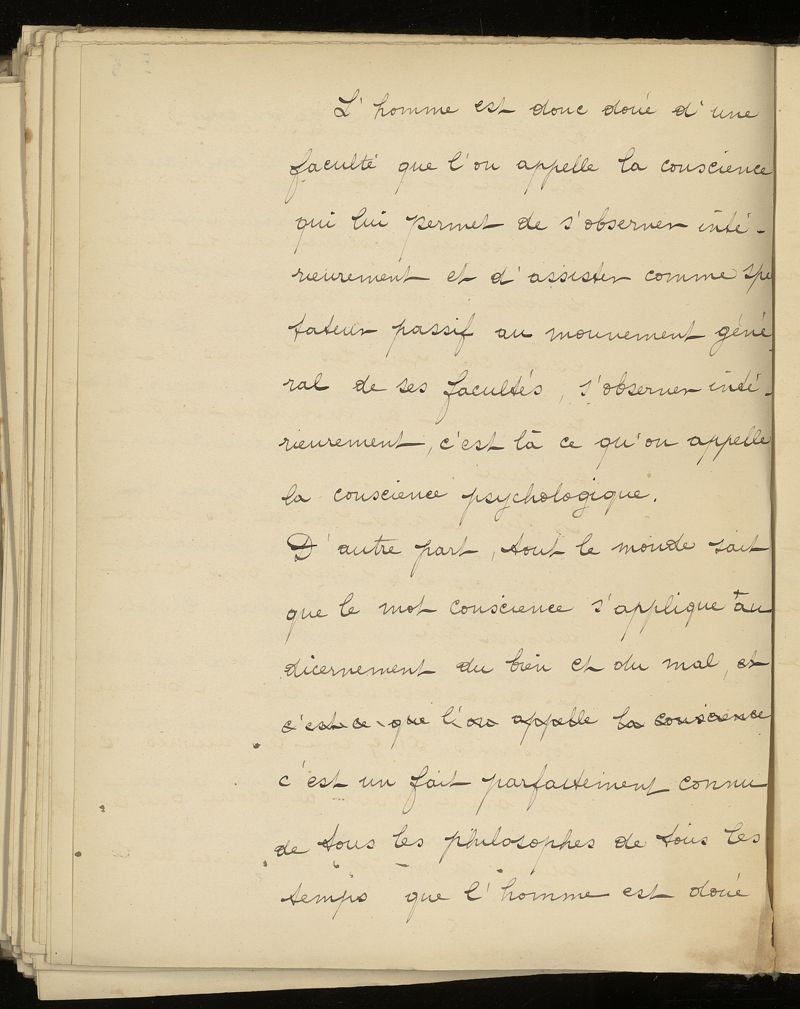 L'homme est donc doué d'une
faculté que l'on appelle la conscience
qui lui permet de s'observer inté-
rieurement et d'assister comme spe
tateur passif au mouvement géné
ral de ses facultés, s'observer inté-
rieurement, c'est là ce qu'on appelle
la conscience psychologique.
D'autre part, tout le monde sait
que le mot conscience s'applique au
dicernement du bien et du mal, et
c'est ce que l'on appelle la conscience
c'est un fait parfaitement connu
de tous les philosophes de tous les
temps que l'homme est doué